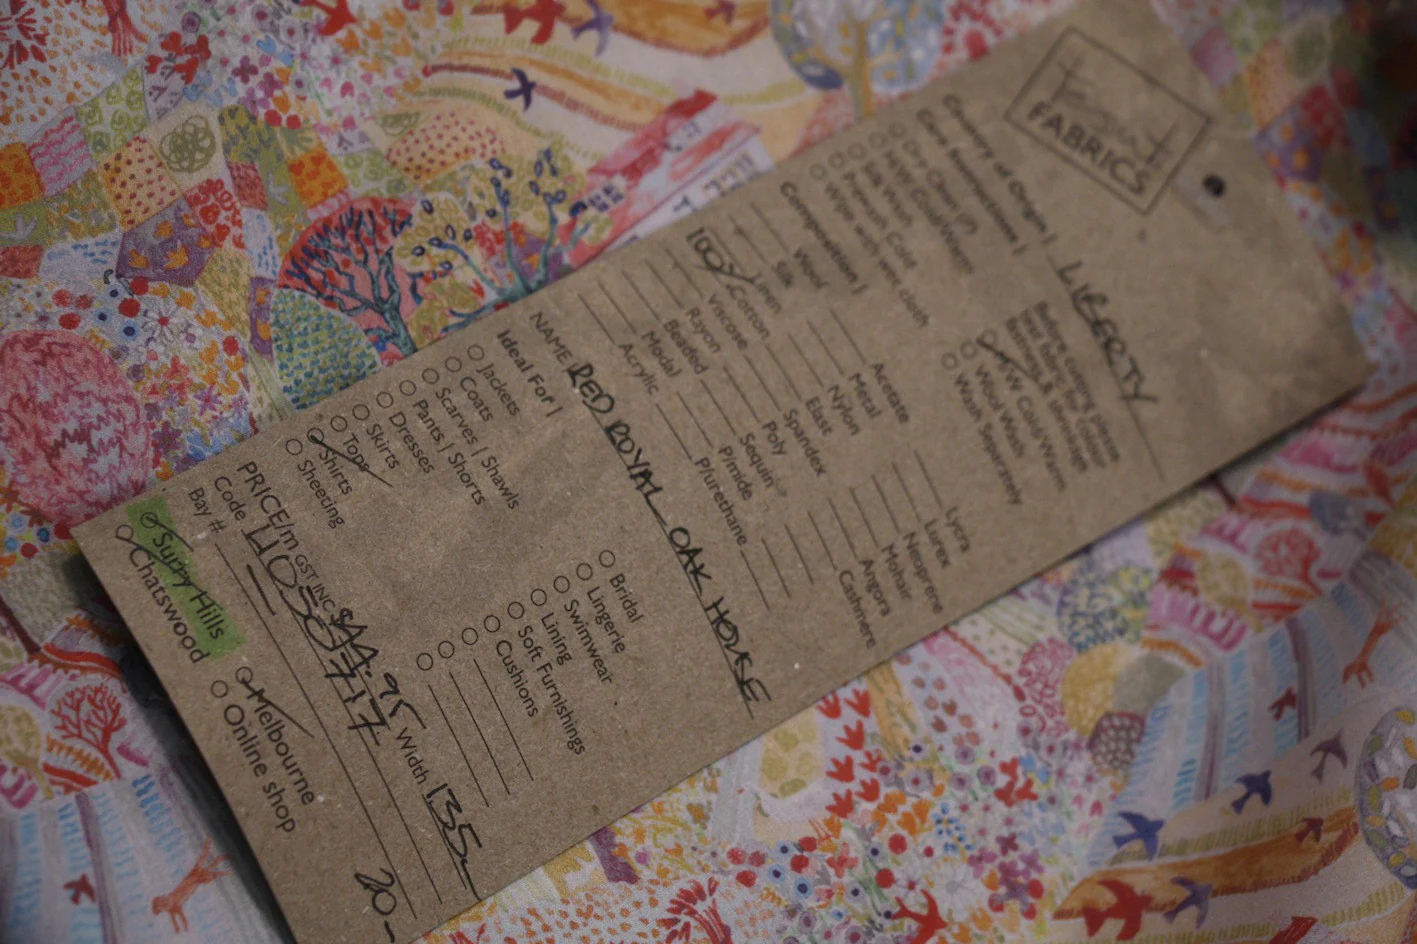 FABRICS
Country of Origin | LIBERTY
Care Instructions |
Before cutting please
test fabric for colour
fastness & shrinkage
Dry Clean (P)
M/W Cold Wash
Silk Wash
Prewash Cold
Wipe with wet cloth
H/W Cold/Warm
Wool Wash
Wash Separately
Composition |
Wool
Silk
Linen
100% Cotton
Viscose
Rayon
Beaded
Modal
Acrylic
Acetate
Metal
Nylon
Elast
Spandex
Poly
Sequin
P/mide
P/urethane
Lycra
Lurex
Neoprene
Mohair
Angora
Cashmere
NAME | RED ROYAL OAK HOUSE
Ideal For |
Jackets
Coats
Scarves | Shawls
Pants | Shorts
Dresses
Skirts
Tops
Shirts
Sheeting
Bridal
Lingerie
Swimwear
Lining
Soft Furnishings
Cushions
PRICE/m GST INC $44.95 Width 135
Code
Bay #
20-
Surry Hills
Chatswood
Melbourne
Online shop